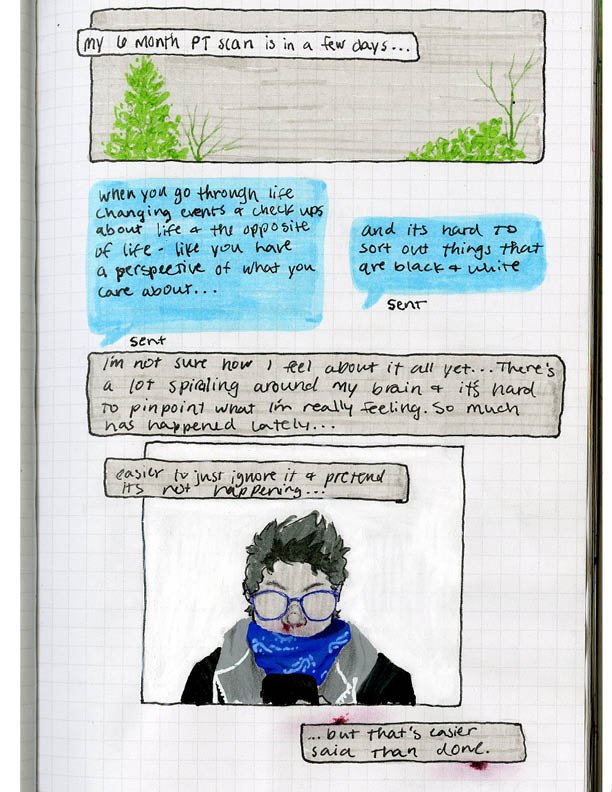 my 6 month PT scan is in a few days...
when you go through life
changing events & check ups
about life & the opposite
of life - like you have
a perspective of what you
care about...
sent
and its hard to
sort out things that
are black & white
sent
I'm not sure how I feel about it all yet... There's
a lot spiraling around my brain & it's hard
to pinpoint what I'm really feeling. So much
has happened lately...
easier to just ignore it & pretend
its not happening...
...but that's easier
said than done.